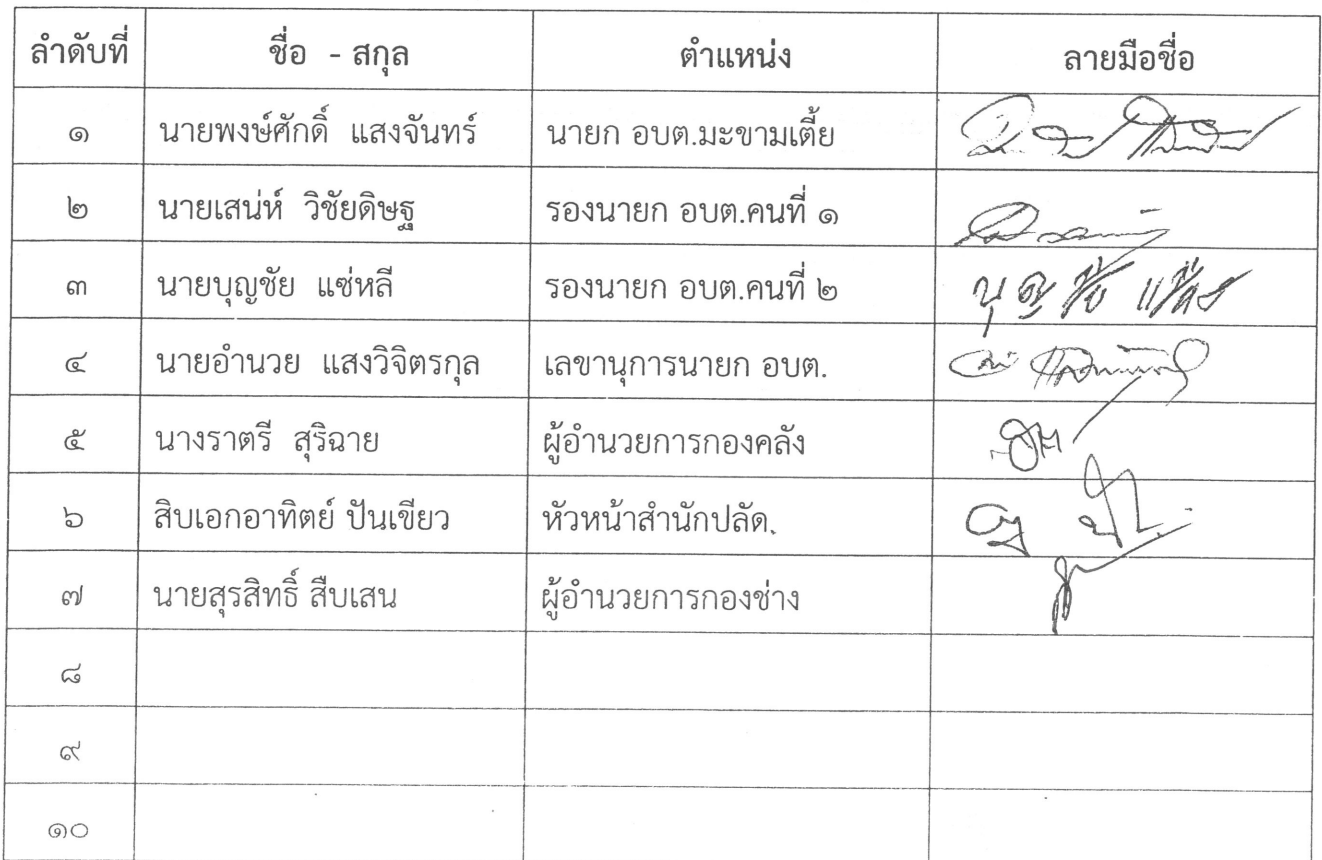 ลำดับที่ ชื่อ - สกุล ตำแหน่ง ลายมือชื่อ
๑ นายพงษ์ศักดิ์ แสงจันทร์ นายก อบต.มะขามเตี้ย
๒ นายเสน่ห์ วิชัยดิษฐ รองนายก อบต.คนที่ ๑
๓ นายบุญชัย แซ่หลี รองนายก อบต.คนที่ ๒ บุญชัย
๔ นายอำนวย แสงวิจิตรกุล เลขานุการนายก อบต.
๕ นางราตรี สุริฉาย ผู้อำนวยการกองคลัง
๖ สิบเอกอาทิตย์ ปันเขียว หัวหน้าสำนักปลัด.
๗ นายสุรสิทธิ์ สืบเสน ผู้อำนวยการกองช่าง
๘
๙
๑๐